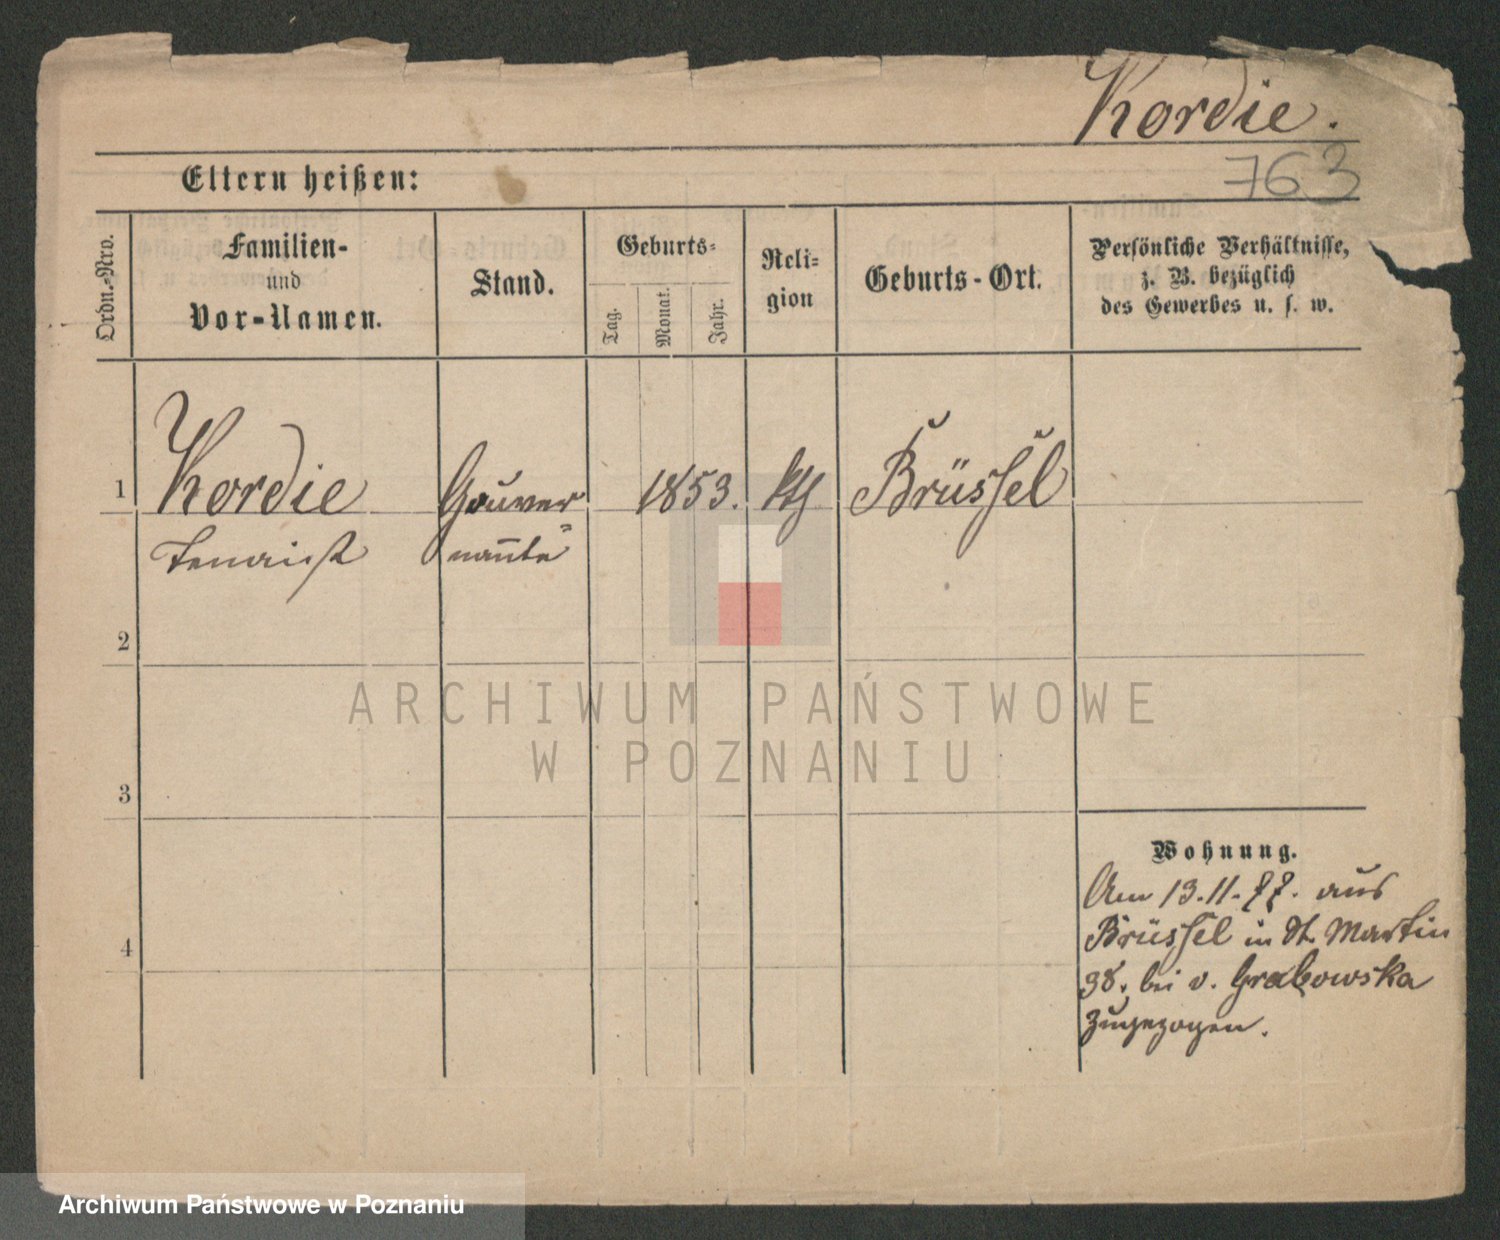 Kordie.
763
Eltern heißen:
Ordn.-Nro.
Familien-
und
Vor-Namen.
Stand.
Geburts-
Tag.
Monat.
Jahr.
Reli-
gion
Geburts-Ort.
Persönliche Verhältnisse,
z. B. bezüglich
des Gewerbes u. s. w.
1
Kordie
Gouver
nante
1853.
kth
Brüssel
2
3
4
Wohnung.
Am 13.11.77. aus
Brüssel in St. Martin
38. bei v. Grabowska
zugezogen.
ARCHIWUM PAŃSTWOWE
W POZNANIU
Archiwum Państwowe w Poznaniu